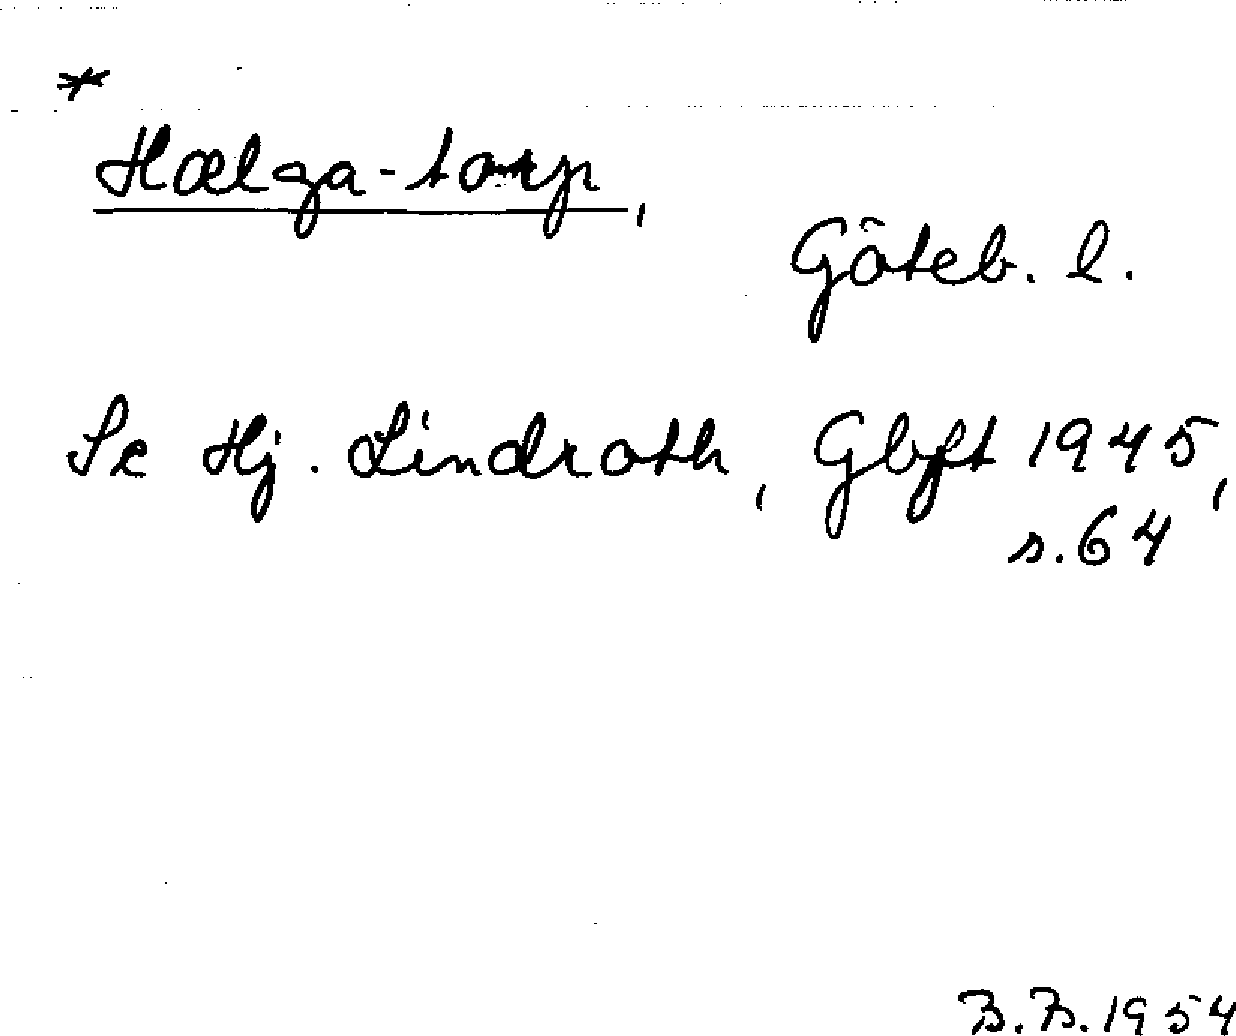 *
Hælga-torp,
Göteb. l.
Se Hj. Lindroth, Gbgft 1945,
s. 64
B.B. 1954